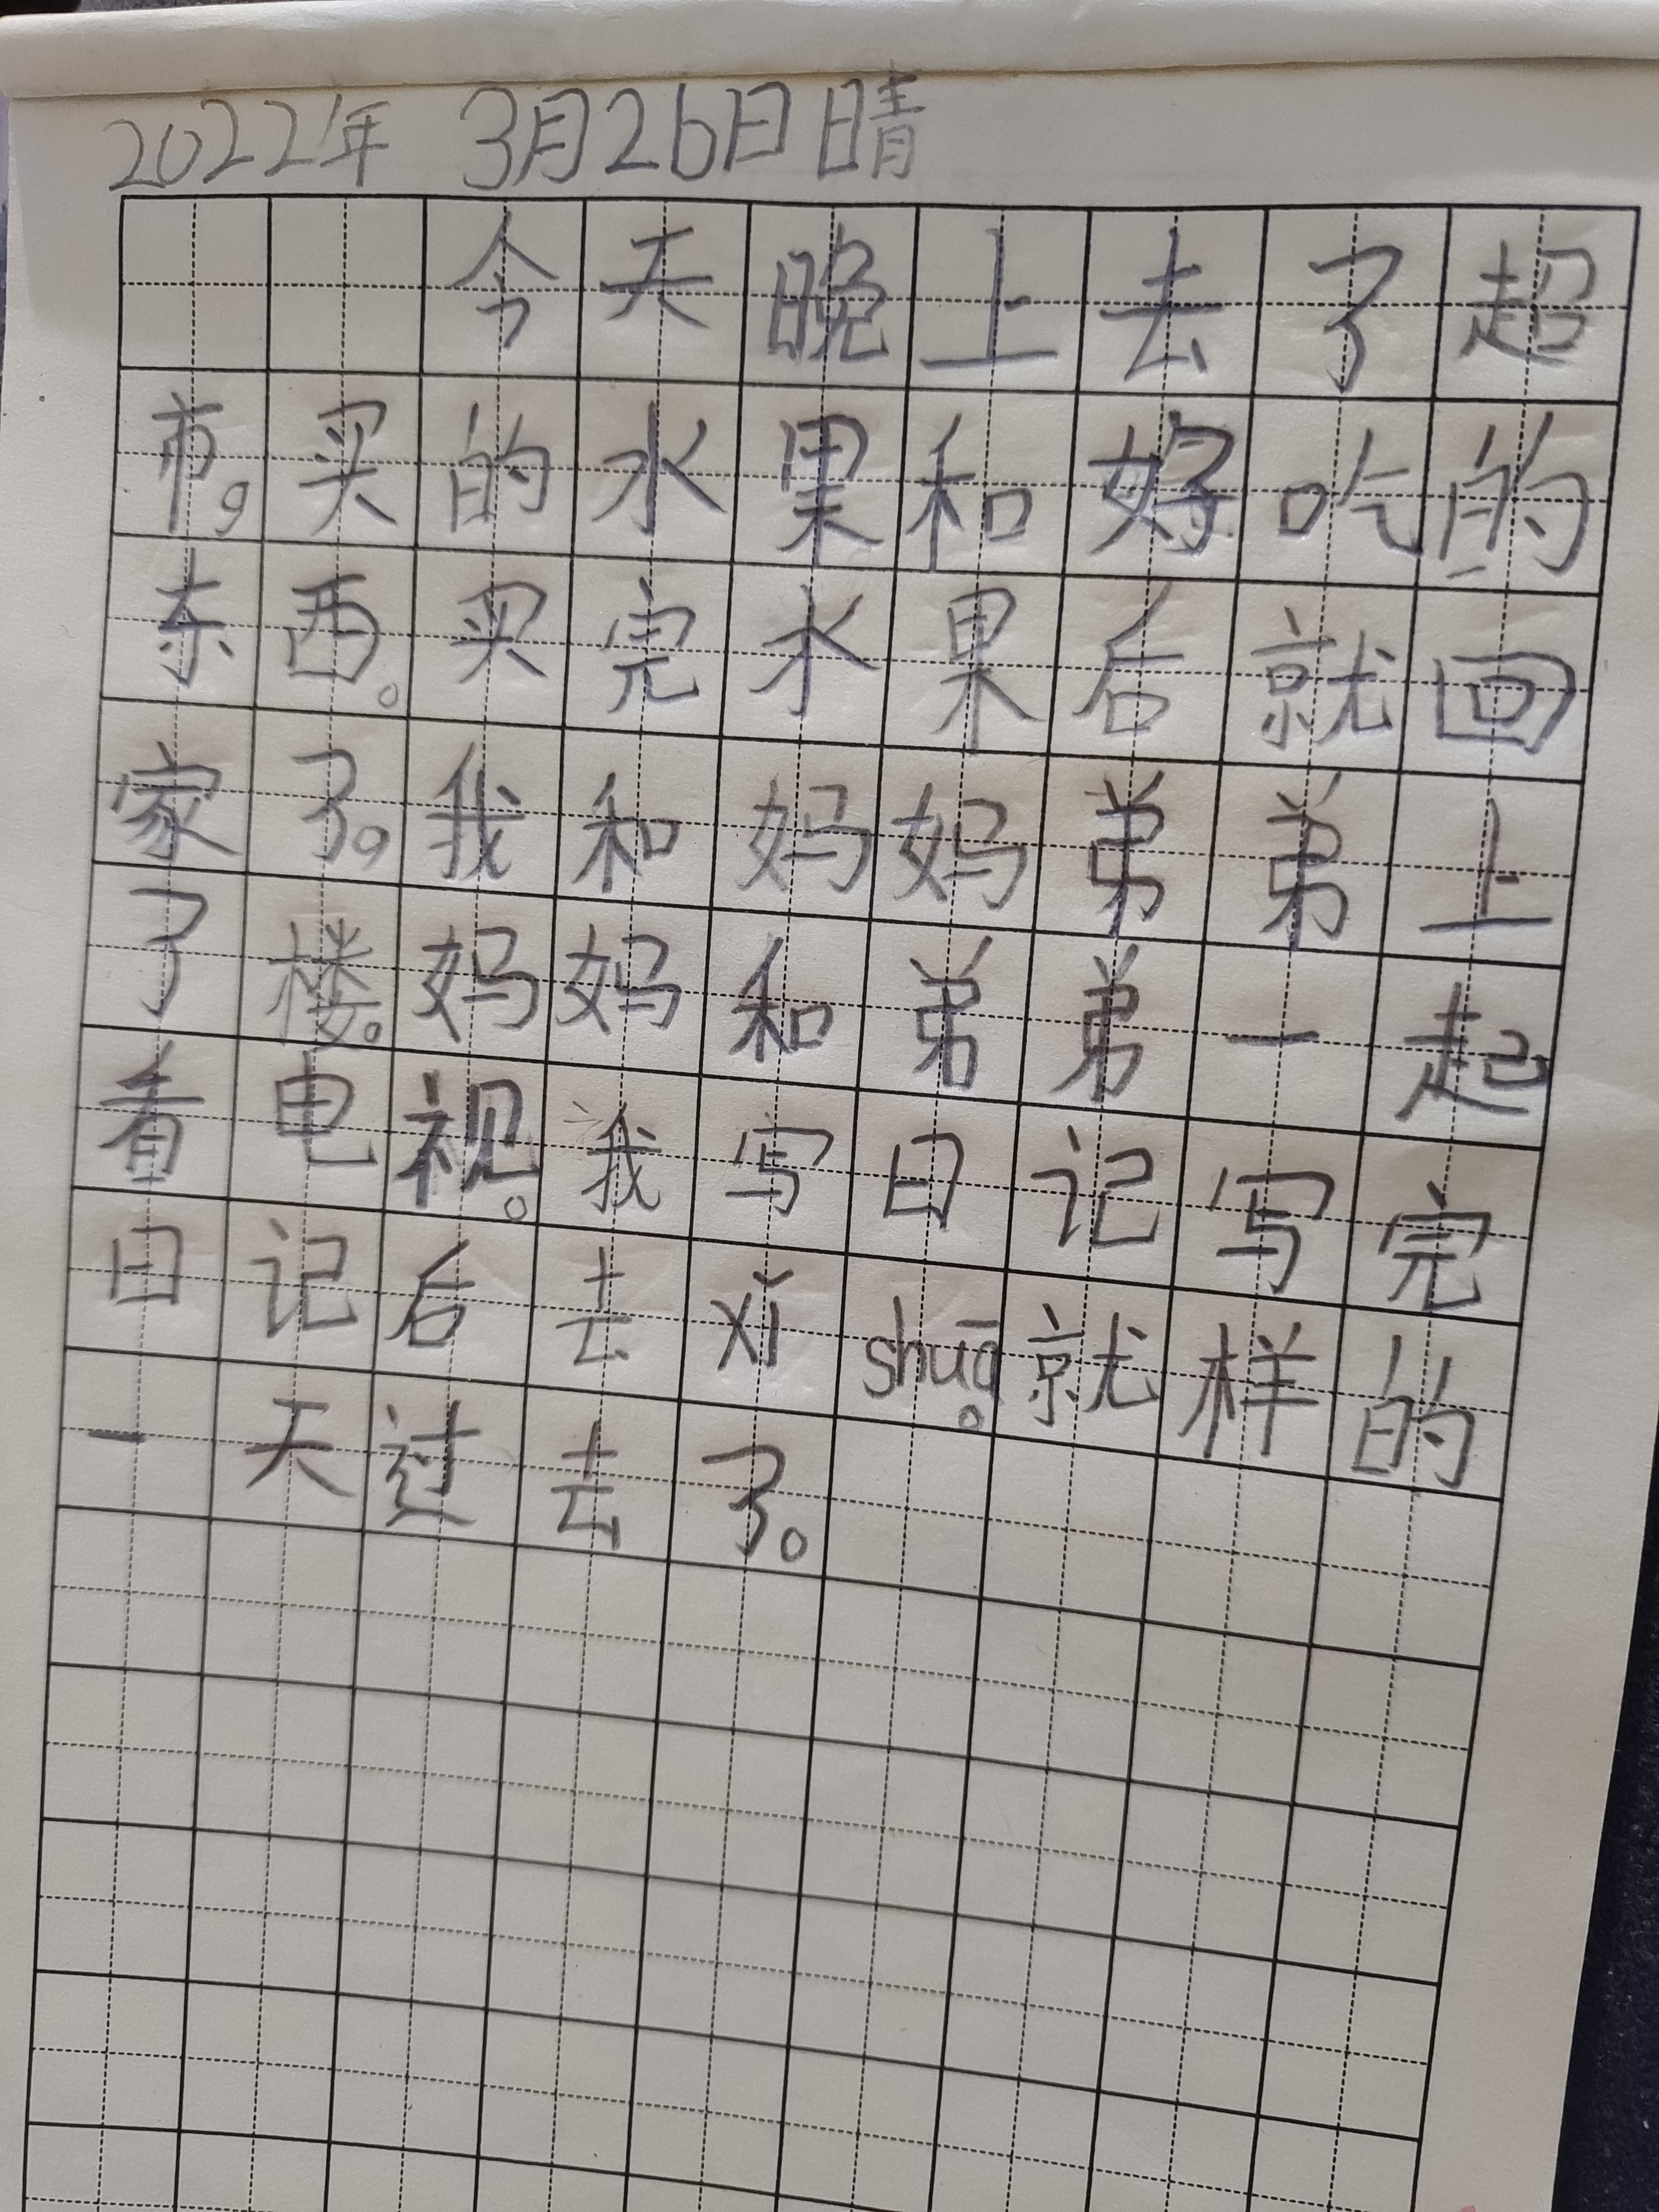 2022年 3月26日晴
今天晚上去了超
市。买的水果和好吃的
东西。买完水果后就回
家了。我和妈妈弟弟上
了楼。妈妈和弟弟一起
看电视。我写日记写完
日记后去xǐ shuā。就样的
一天过去了。